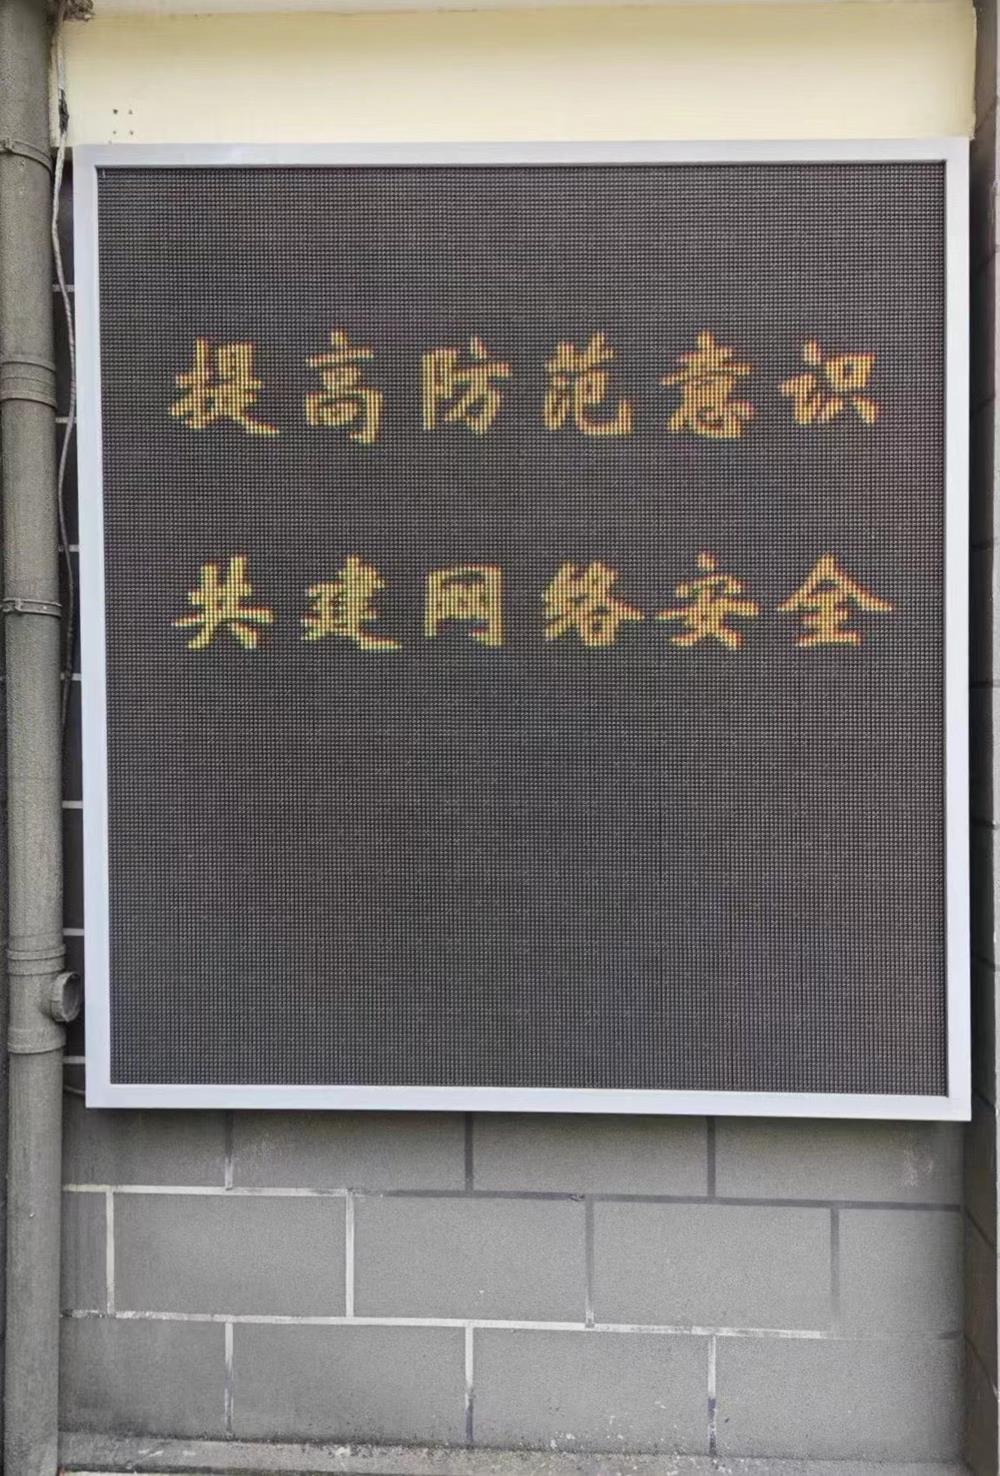 提高防范意识
共建网络安全